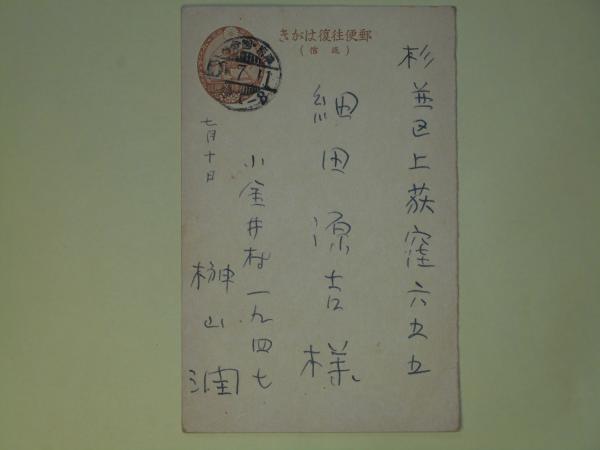 きがは復往便郵
(信返)
杉並区上荻窪六五五
細田源吉様
小金井村一九四七
榊山潤
七月十日